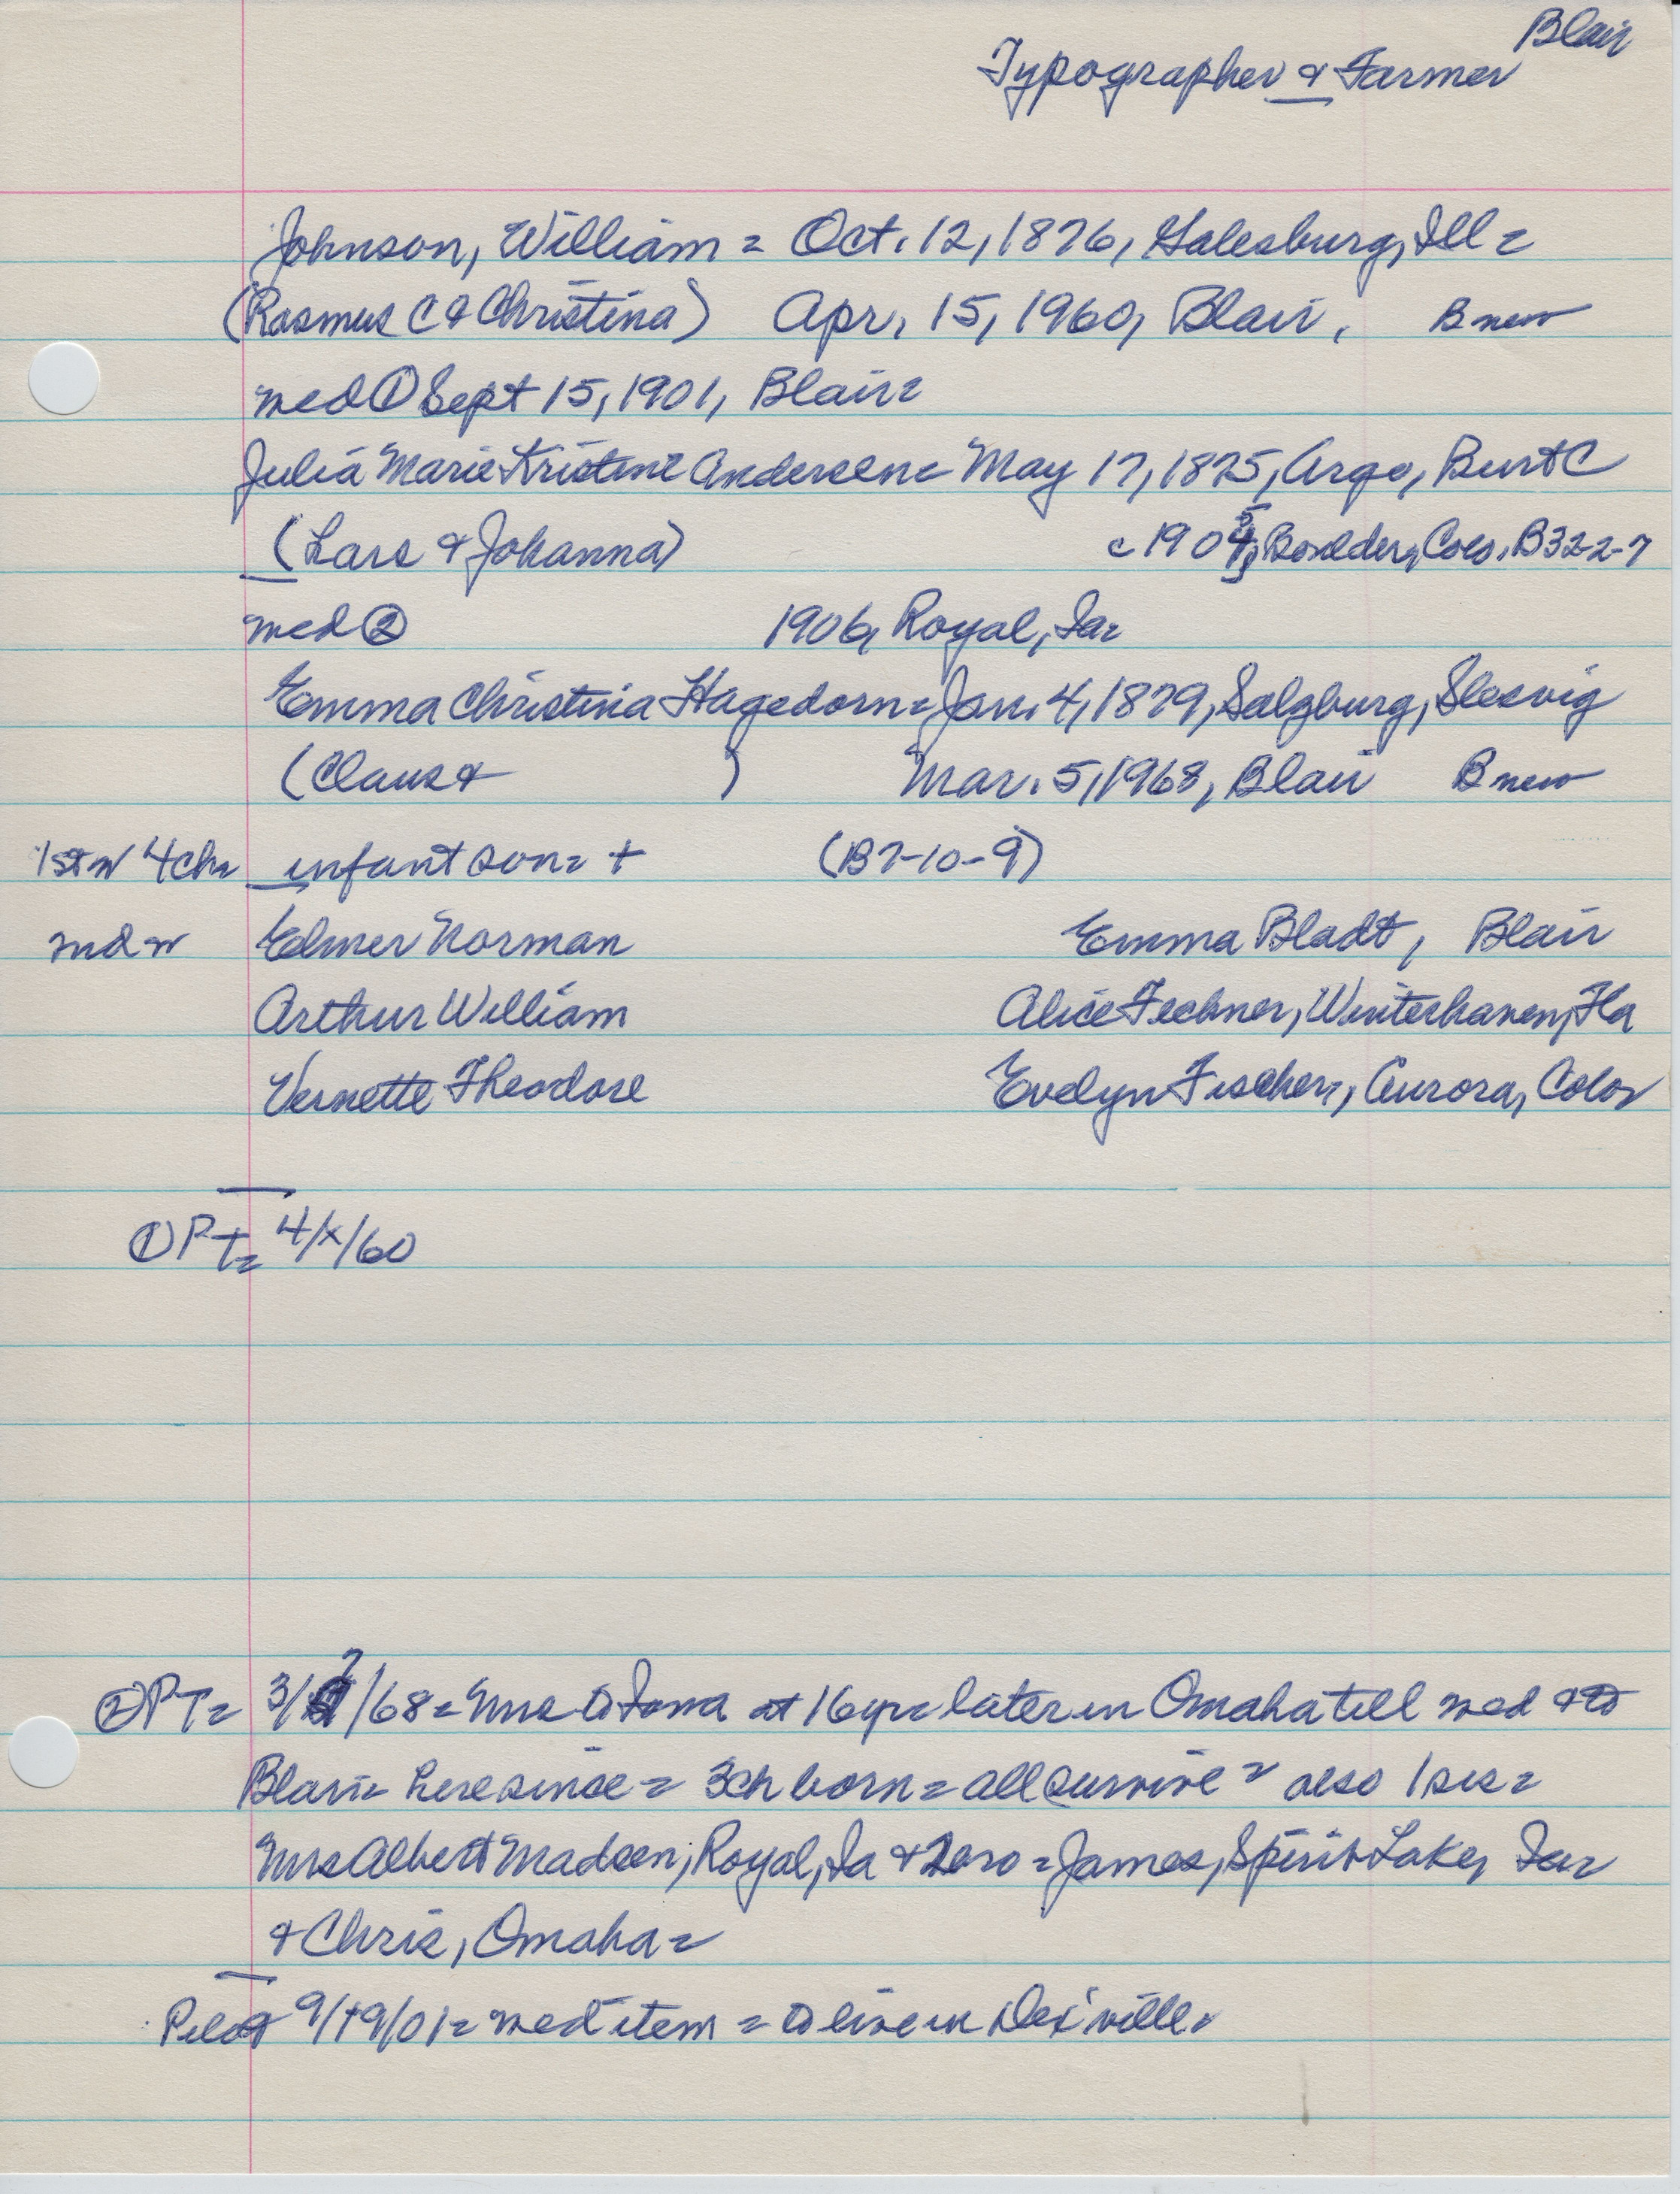 Blair
Typographer & Farmer
Johnson, William = Oct. 12, 1876, Galesburg, Ill =
(Rasmus C & Christina) Apr. 15, 1960, Blair, B new
med ① Sept 15, 1901, Blair =
Julia Marie Kristine Andersen = May 17, 1875, Argo, Burt C
(Lars & Johanna) c 190 Boulder, Colo. B32-2-7
med ② 1906, Royal, Ia =
Emma Christina Hagedorn = Jan. 4, 1879, Salzburg, Slesvig
(Claus & ) Mar. 5, 1968, Blair B new
1st w 4ch = infant son = + (B7-10-9)
2nd w Elmer Norman Emma Bladt, Blair
Arthur William Alice Fechner, Winterhaven, Fla
Vernette Theodore Evelyn Fischer, Aurora, Colo
① PT = 4/x/60
② PT = 3/7/68 = Mrs to Iowa at 16yr = later in Omaha till med & to
Blair = here since = 3ch born = all survive = also 1 sis =
Mrs Albert Madsen, Royal, Ia & 2bro = James, Spirit Lake, Ia =
& Chris, Omaha =
Pilot 9/19/01 = med item = to live in Des'ville.